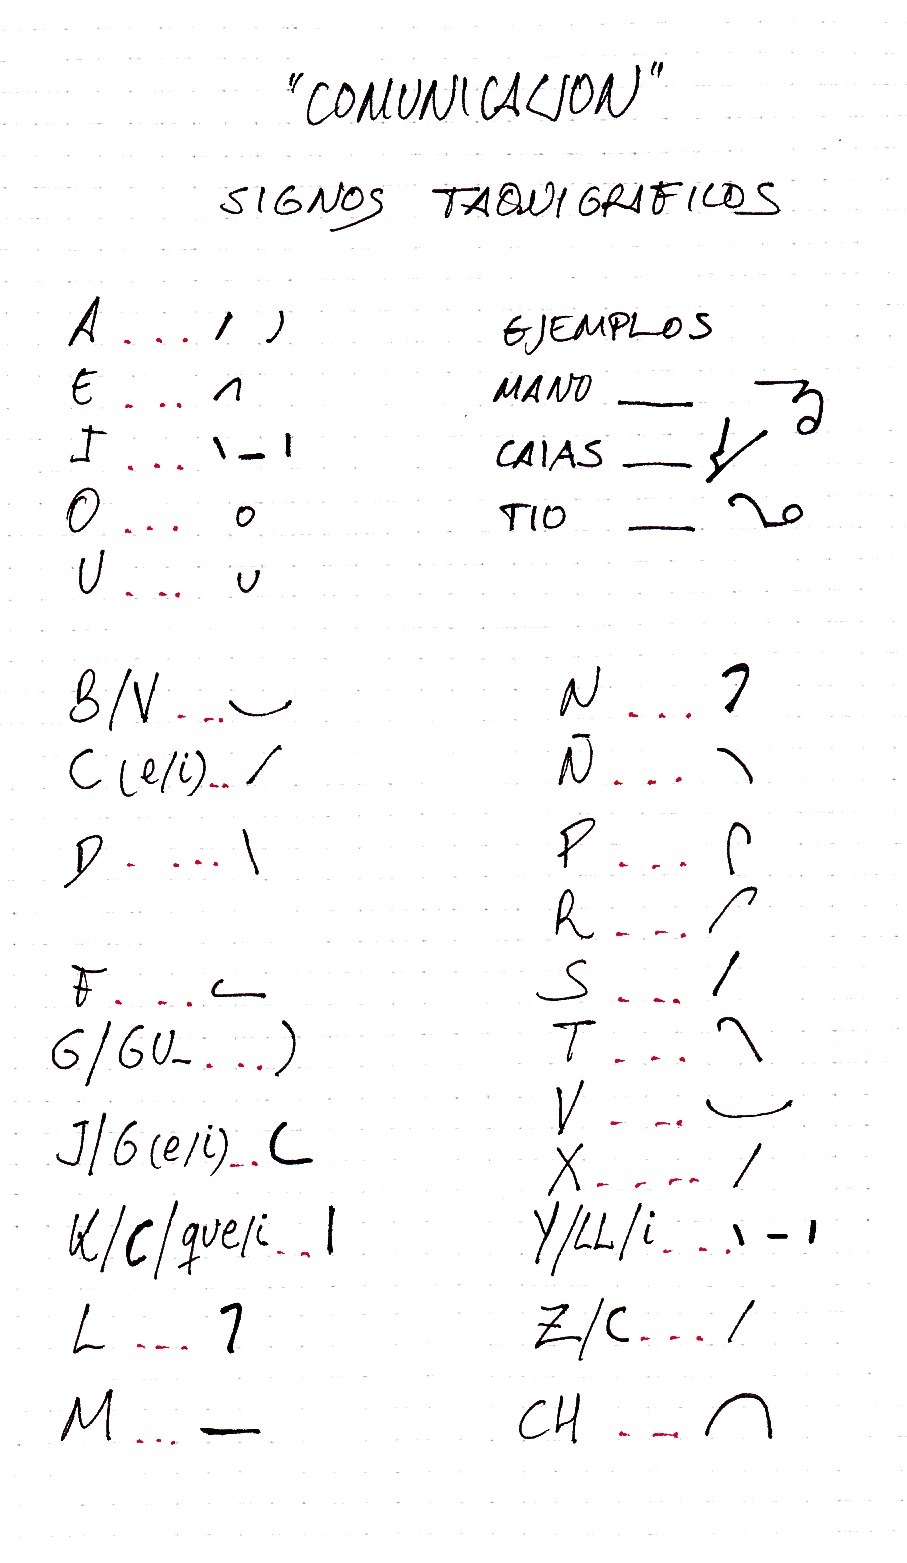 "COMUNICACION"
SIGNOS TAQUIGRAFICOS
A ....
E ....
I ....
O ....
U ....
EJEMPLOS
MANO ___
CAIAS ___
TIO ___
B/V ....
C (e/i)...
D .....
F .....
G/GU-....
J/G(e/i)...
K/C/que/i...
L ....
M ....
N ....
Ñ ....
P ....
R ....
S ....
T ....
V ....
X .....
Y/LL/i....
Z/C....
CH ...